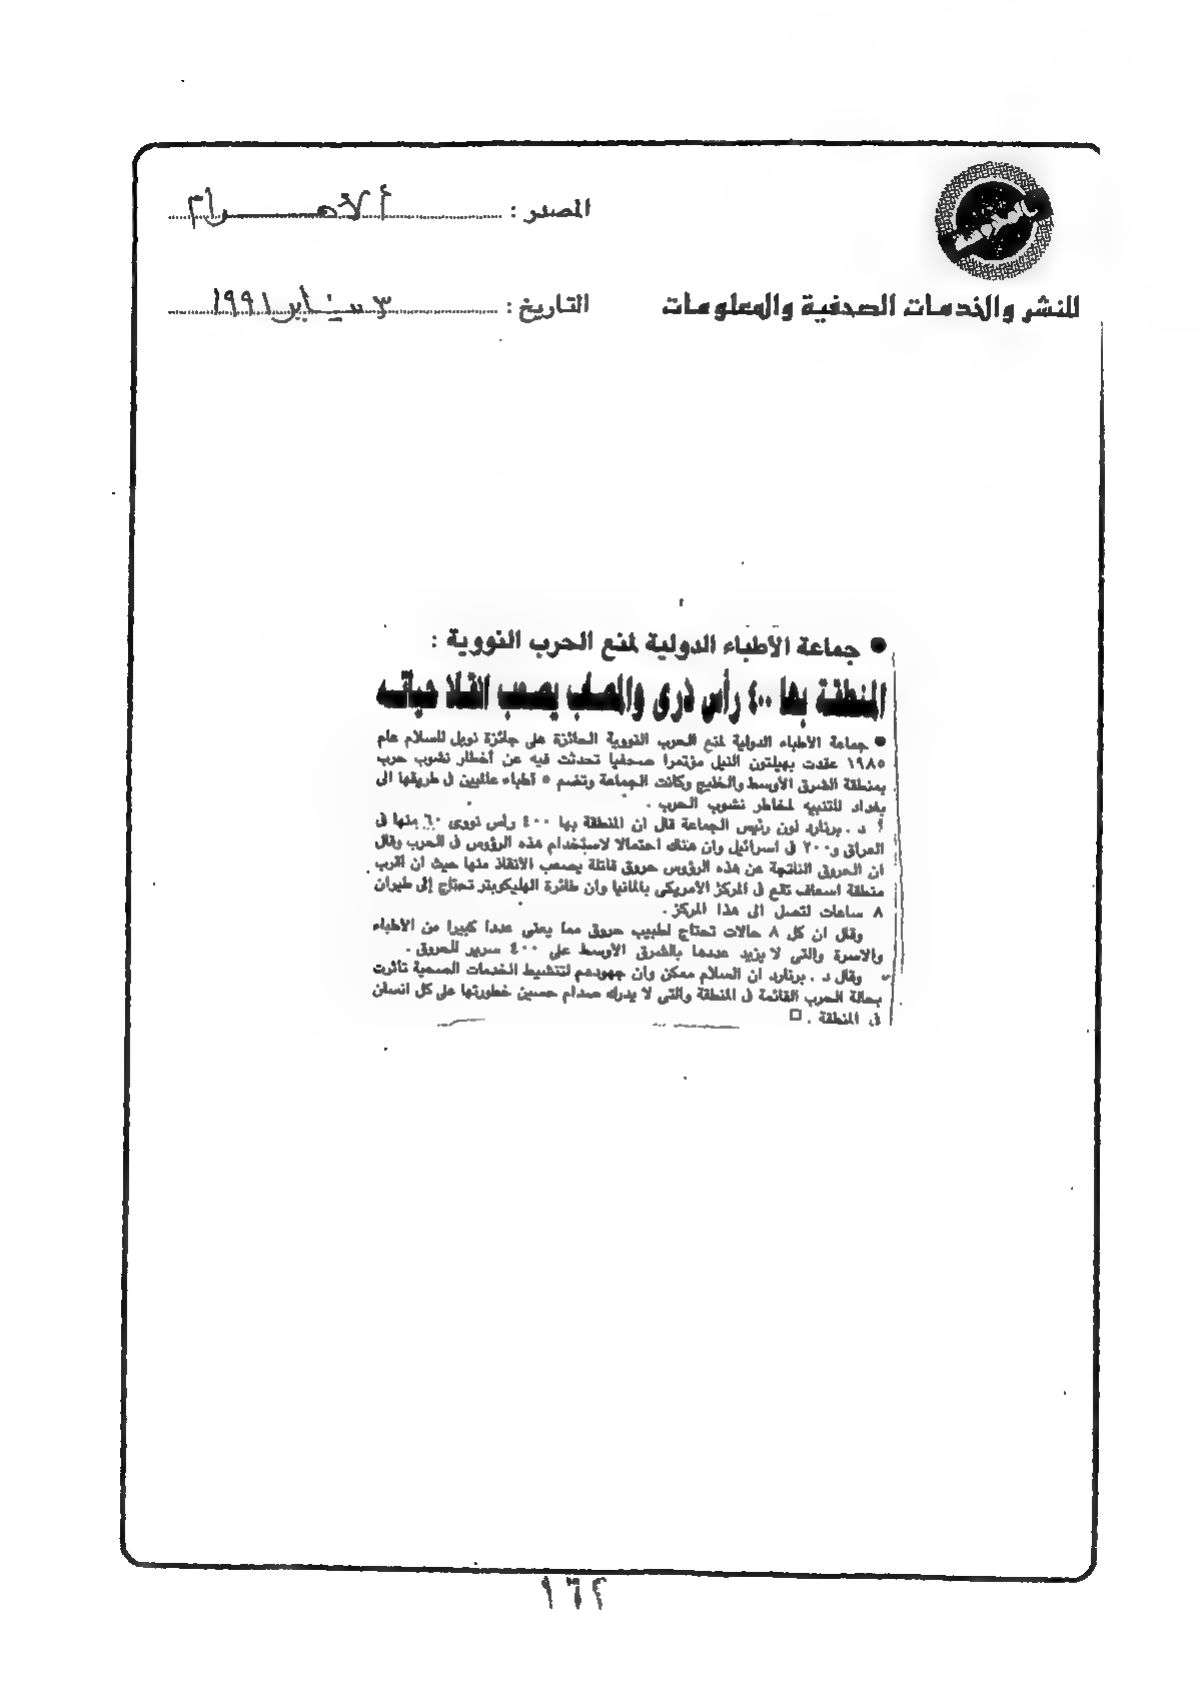 المصدر : الأهرام
للنشر والخدمات الصحفية والمعلومات
التاريخ : ٣ يناير ١٩٩١
● جماعة الأطباء الدولية لمنع الحرب النووية :
المنطقة بها ٤٠٠ رأس ذرى والمصاب يصعب انقاذ حياته
● جماعة الأطباء الدولية لمنع الحرب النووية الحائزة على جائزة نوبل للسلام عام
١٩٨٥ عقدت بهيلتون النيل مؤتمرا صحفيا تحدثت فيه عن أخطار نشوب حرب
بمنطقة الشرق الأوسط والخليج وكانت الجماعة وتضم ٥ أطباء عالميين فى طريقها الى
بغداد للتنبيه لمخاطر نشوب الحرب .
د . برنارد لون رئيس الجماعة قال ان المنطقة بها ٤٠٠ رأس نووى ٦٠ منها فى
العراق و٢٠٠ فى اسرائيل وان هناك احتمالا لاستخدام هذه الرؤوس فى الحرب وقال
ان الحروق الناتجة عن هذه الرؤوس حروق قاتلة يصعب الأنقاذ منها حيث ان أقرب
منطقة اسعاف تقع فى المركز الأمريكى بالمانيا وان طائرة الهليكوبتر تحتاج إلى طيران
٨ ساعات لتصل الى هذا المركز .
وقال ان كل ٨ حالات تحتاج لطبيب حروق مما يعنى عددا كبيرا من الأطباء
والاسرة والتى لا يزيد عددها بالشرق الأوسط على ٤٠٠ سرير للحروق .
وقال د . برنارد ان السلام ممكن وان جهودهم لتنشيط الخدمات الصحية تأثرت
بحالة الحرب القائمة فى المنطقة والتى لا يدرك صدام حسين خطورتها على كل انسان
فى المنطقة . □
١٦٢